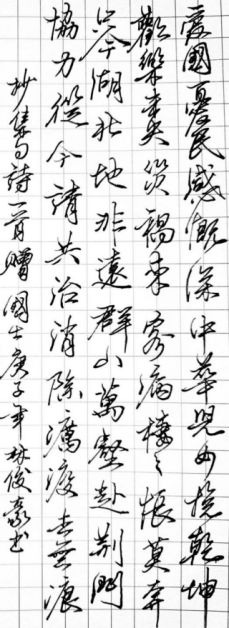 愛國憂民感慨深中華兒女乾坤
歡樂未災禍来客病棲々莫奔
只今湖北地非遠群山萬壑赴荊門
協力從今請共治消除去無痕
抄集句詩一首贈國士庚子年林俊豪书